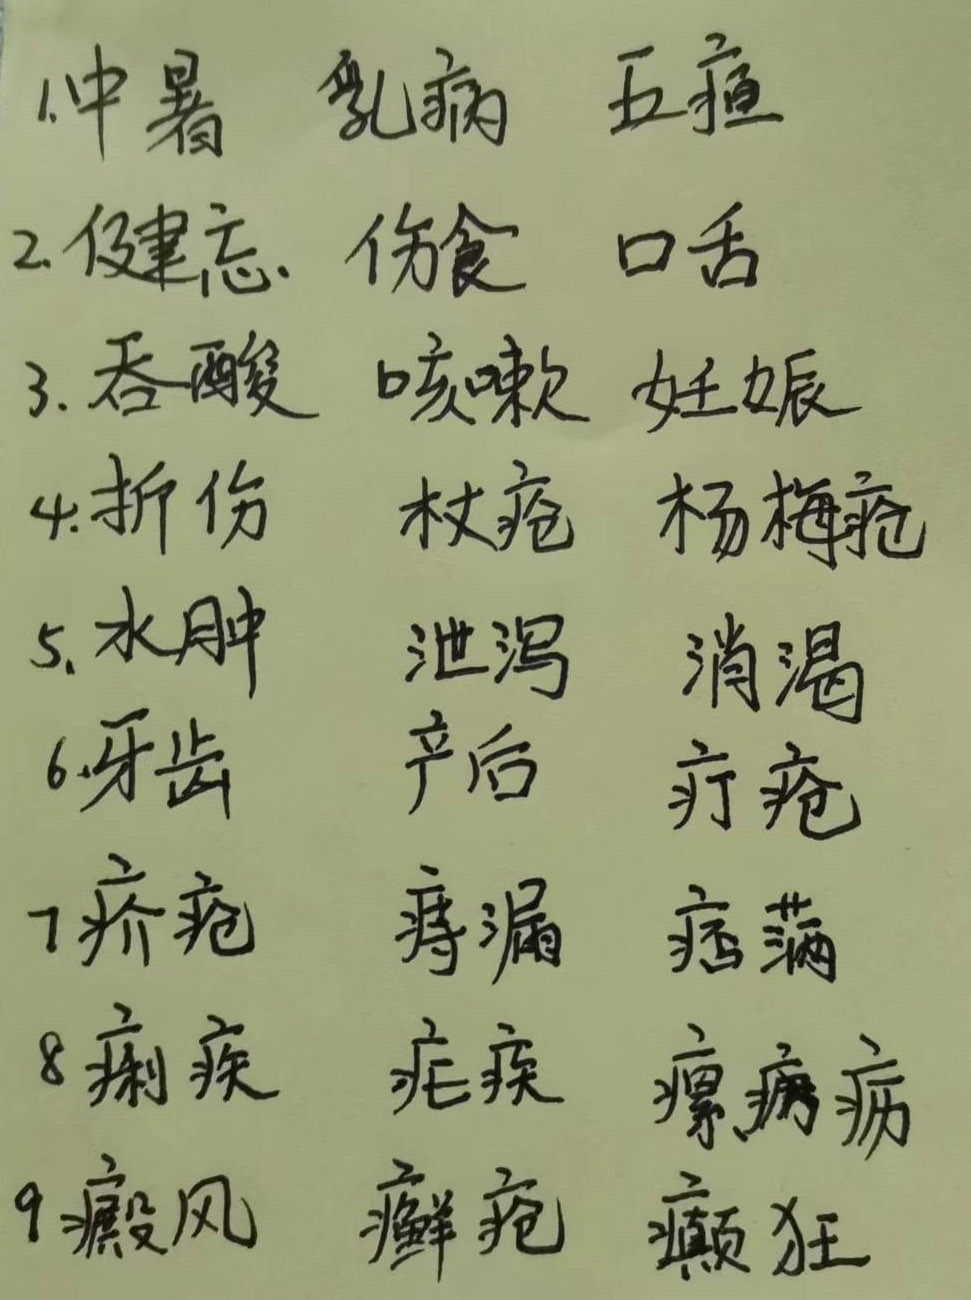 1.中暑 乳病 五疸
2.健忘. 伤食 口舌
3.吞酸 咳嗽 妊娠
4.折伤 杖疮 杨梅疮
5.水肿 泄泻 消渴
6.牙齿 产后 疔疮
7疥疮 痔漏 痞满
8痢疾 疟疾 瘰 疬
9癜风 癣疮 癫狂